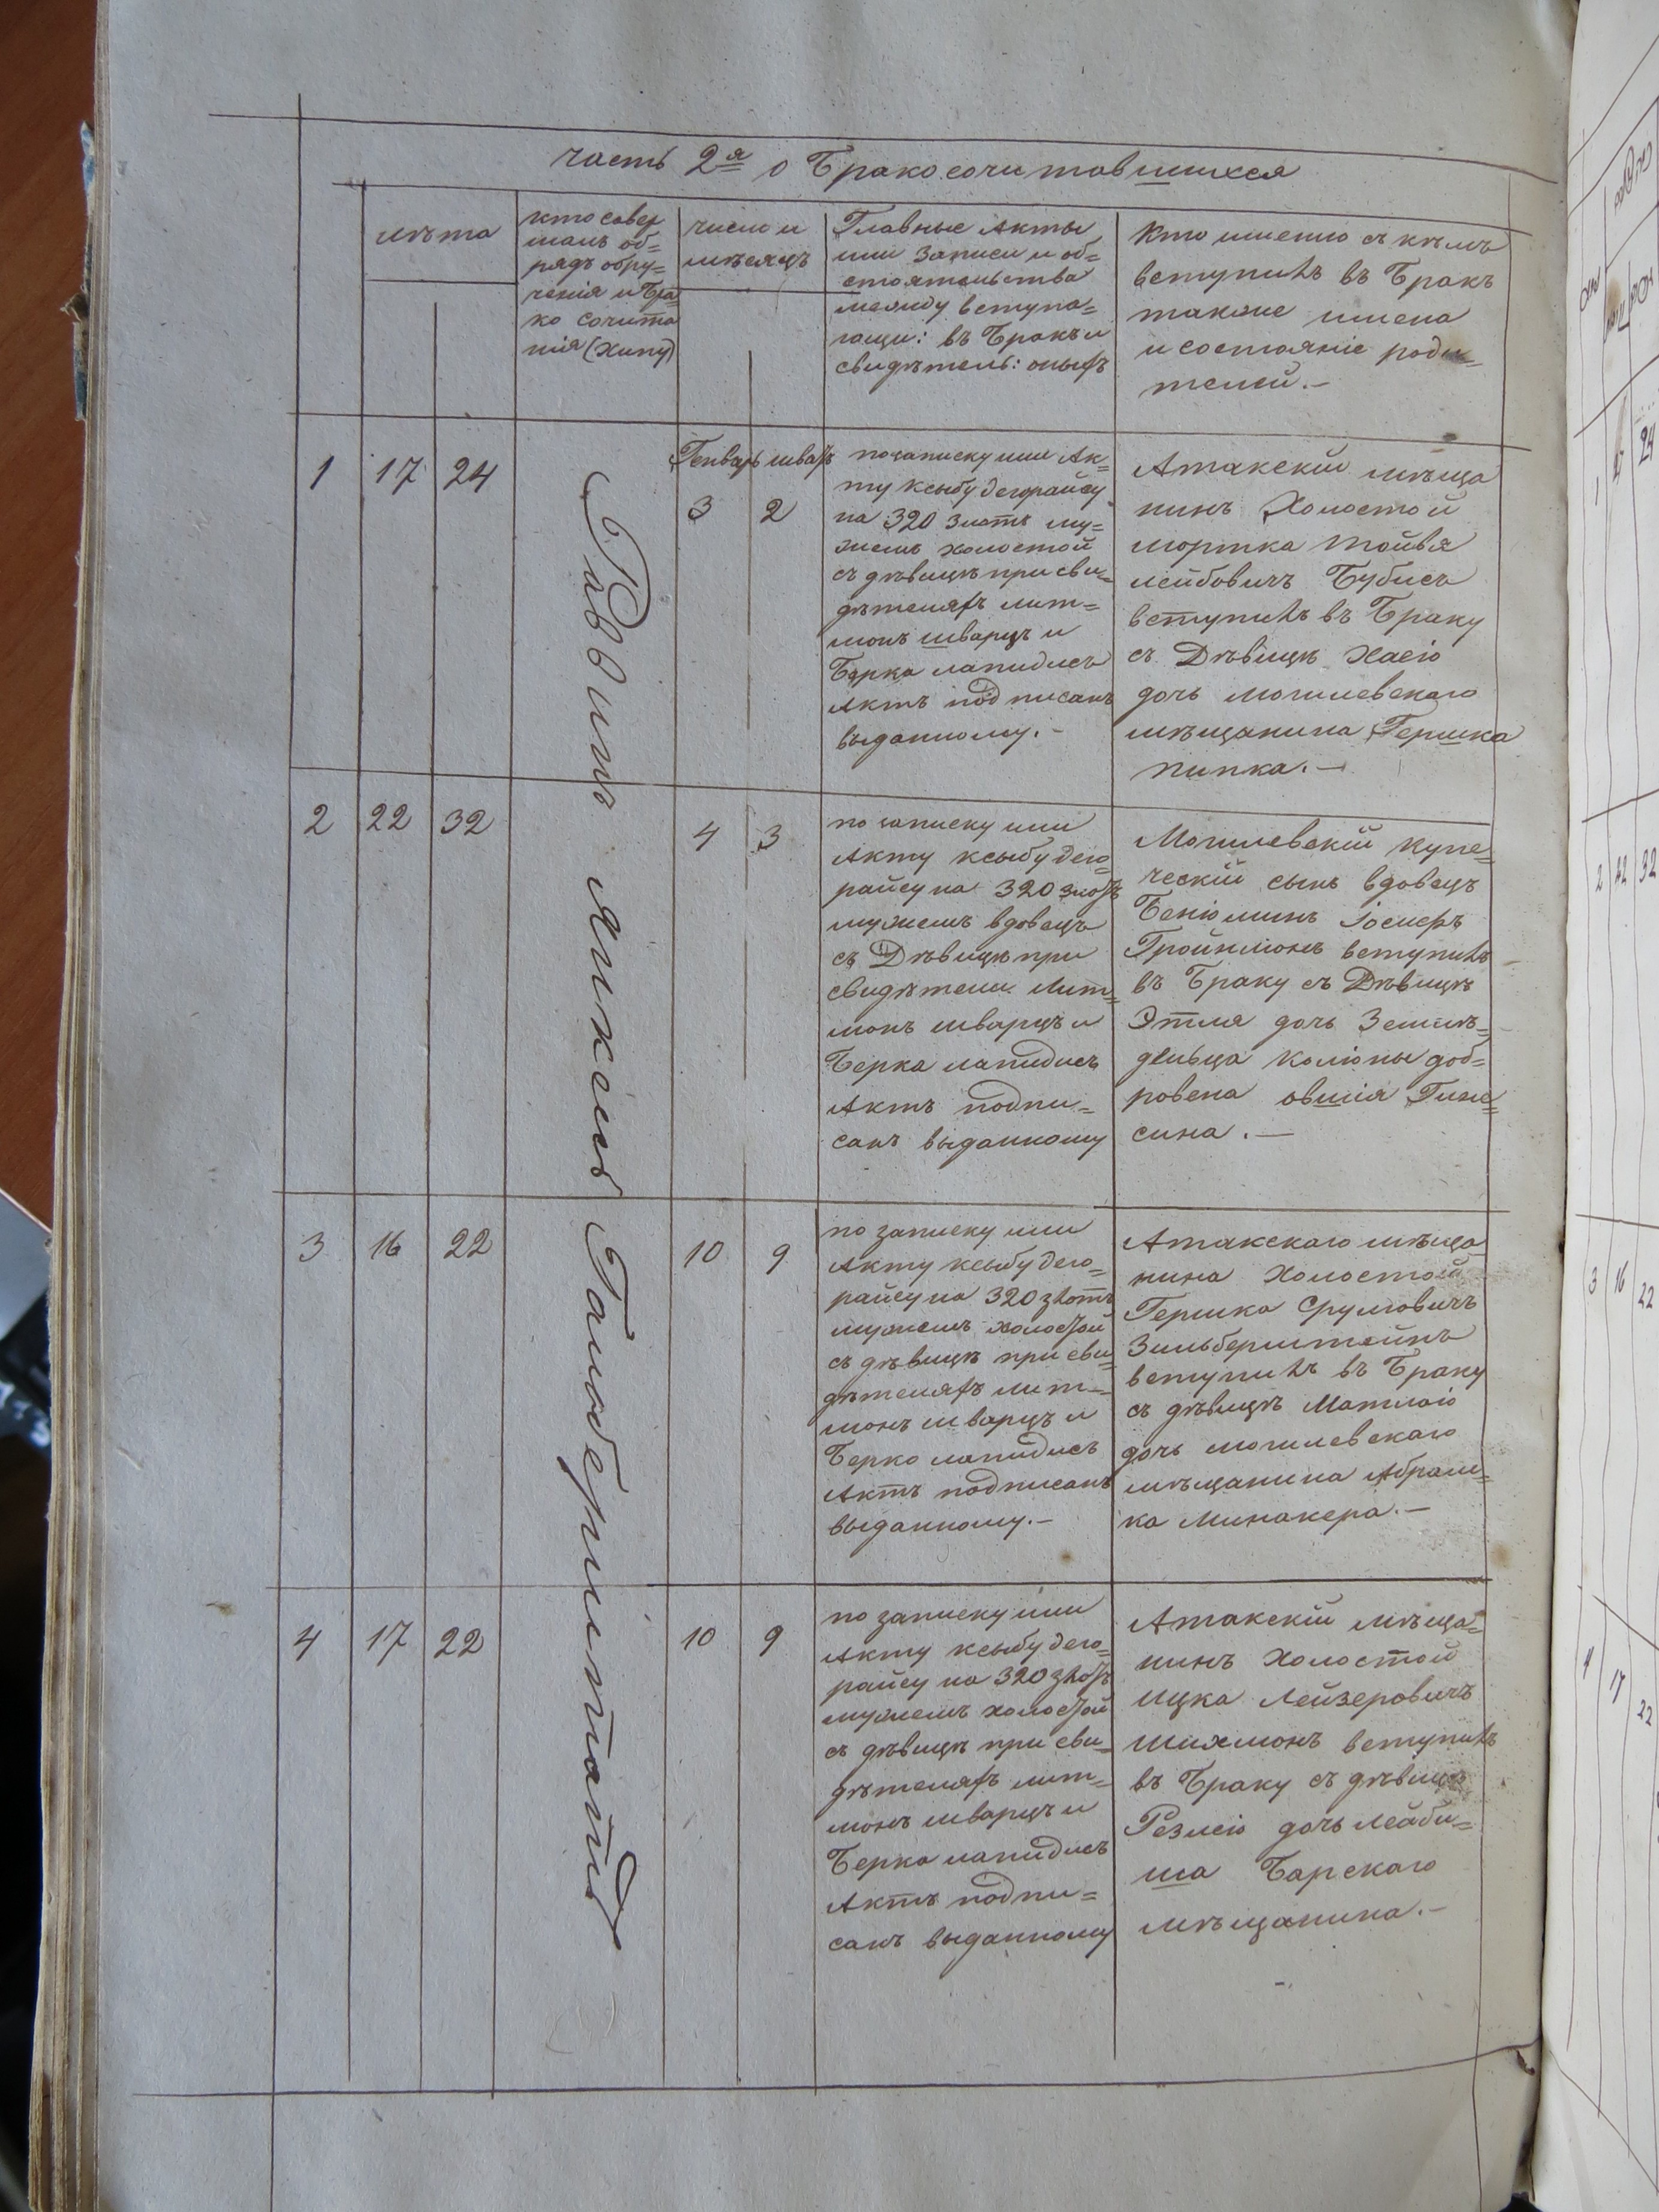 часть 2я о Бракосочитавшихся
лѣта
кто совер
шалъ об=
рядъ обру=
ченія и Бра
ко сочита
нія (Хипу)
числи и
мѣсяцъ
Главные Акты
или Записи и об=
стоятельства
между вступа=
ющи: въ Бракъ и
свидѣтель: оныхъ
Кто именно съ кѣмъ
вступилъ въ Бракъ
также имена
и состояніе роди=
телей.—
Равинъ Янкель
1
17
24
Генварь шватъ
3
2
по записку или Ак=
ту ксыбу дегорайсу
на 320 злотъ му=
жемъ холостой
съ дѣвицѣ при сви=
дѣтеляхъ лит=
монъ шварцъ и
Берка лапидисъ
Актъ подписанъ
выданному.—
Атакскій мѣща
нинъ Холостой
мортка тойвя
лейбовичъ Бубисъ
вступилъ въ Браку
съ Дѣвицѣ Хаею
дочь могилевскаго
мѣщанина Гершка
Пипка.—
2
22
32
4
3
по записку или
Акту ксыбу дего=
райсу на 320 злотъ
мужемъ вдовецъ
съ Дѣвицѣ при
свидѣтели Лит=
монъ шварцъ и
Берка лапидисъ
Актъ подпи=
санъ выданному
Могилевскій купе=
ческій сынъ вдовецъ
Беніоминъ Іосифъ
Гройнмонъ вступилъ
въ Браку съ Дѣвицѣ
Этля дочь Землѣ=
дѣльца колюны доб=
ровена овшія
сина.—
3
16
22
10
9
по записку или
Акту ксыбу дего=
райсу на 320 злотъ
мужемъ холостой
съ дѣвицѣ при сви=
дѣтеляхъ лит=
монъ шварцъ и
Берко лапидисъ
Актъ подписанъ
выданному.—
Атакскаго мѣща
нина Холостой
Гершка Срулювичъ
Зильберштейнъ
вступилъ въ Браку
съ дѣвицѣ Матлею
дочь могилевскаго
мѣщанина Абрам=
ка Минакера.—
4
17
22
10
9
по записку или
Акту ксыбу дего=
райсу на 320 злотъ
мужемъ холостой
съ дѣвицѣ при сви=
дѣтеляхъ лит=
монъ шварцъ и
Берко лапидисъ
Актъ подпи=
санъ выданному
Атакскій мѣща=
нинъ Холостой
Ицка Лейзеровичъ
Шихмонъ вступилъ
въ Браку съ дѣвицѣ
Резлею дочь лейби=
ша Барскаго
мѣщанина.—
1
24
2
22
32
3
16
22
4
17
22